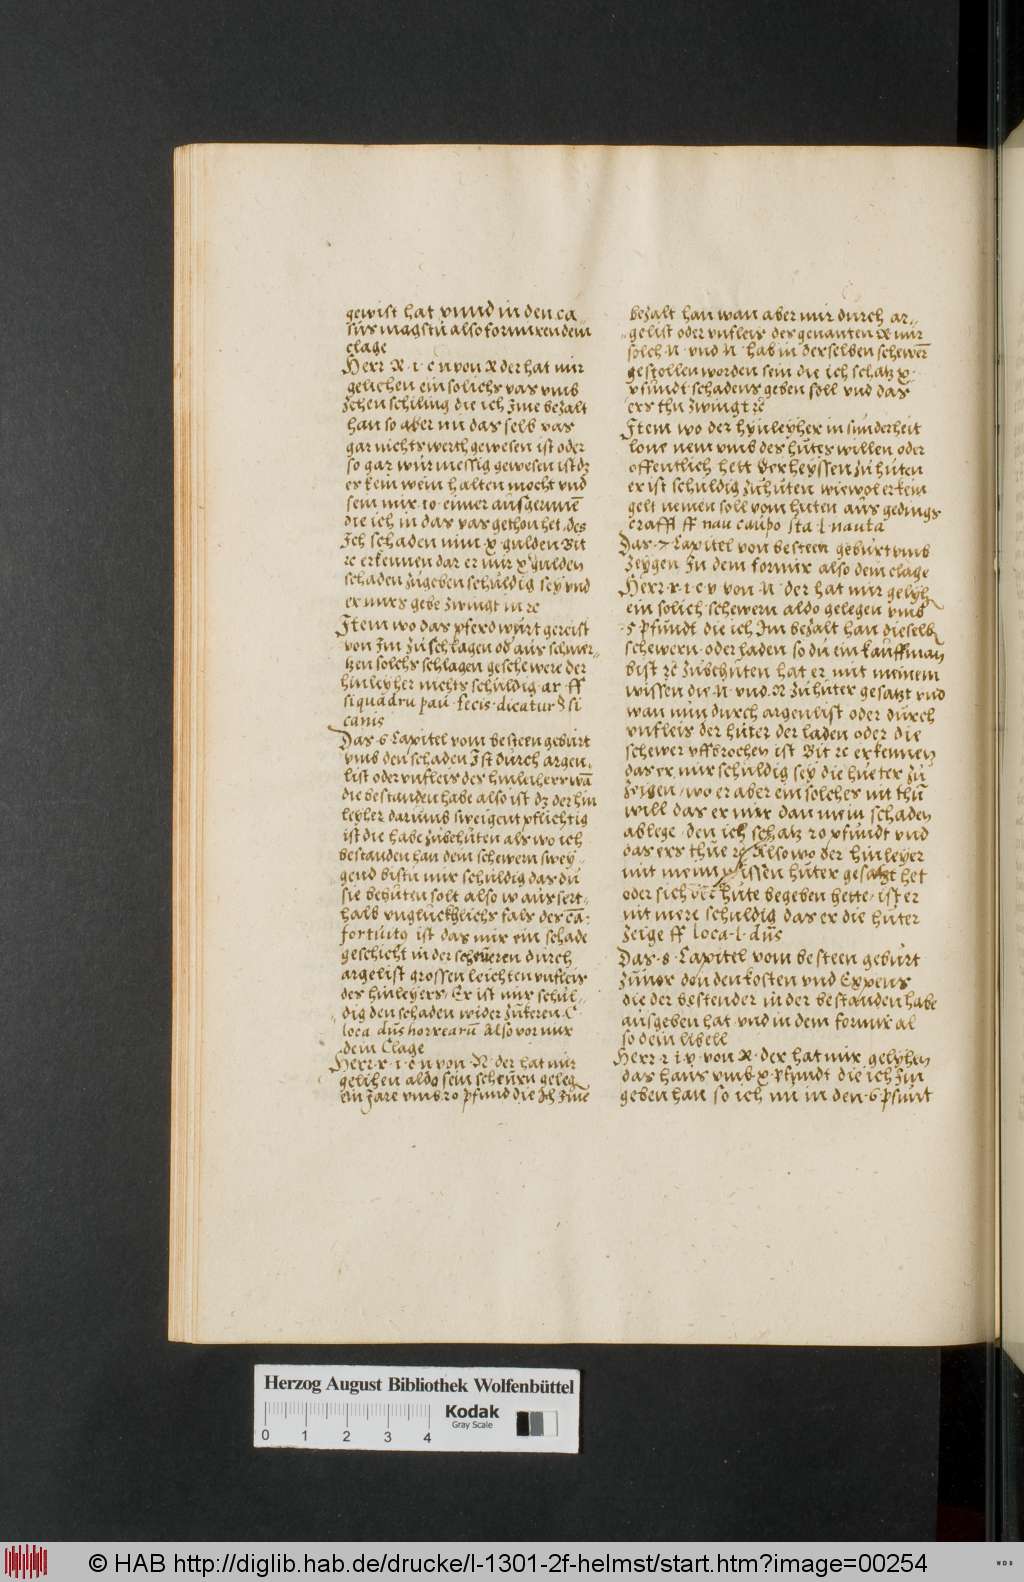 gewist hat vnnd in den ca
sus magstu also formiren dein
clage
Herr R. i. c v von R der hat mir
gelichen ein solichs vas vmb
zehen schiling die ich Jme bezalt
han so aber nu das selb vas
gar nichts werth gewesen ist oder
so gar wurmessig gewesen ist dz
er kein wein halten mocht vnd
sein mir 10 eimer ausgerunē
die ich in das vas gethon het, des
Jch schaden nim x gulden Bit
rc erkennen dar er mir x gulden
schaden zugeben schuldig sey vnd
er mirs gebe zwingt in rc
Item wo das pferd wurt gereist
von Im zu schlagen od aus schmer
tzen solchs schlagen geschewere der
hinleyher nichts schuldig ar ff
si quadru pau fecis dicatur § si
canis
Das 6 Capitel vom besteen geburt
vmb den schaden Jst durch argen
list oder vnfleis des hinleihers wā
die bestanden habe also ist dz der hin
leyher darumb sweigent pflichtig
ist die habe zubehuten als wo ich
bestanden han dem schewern swey
gend bistu mir schuldig das du
sie behuten solt also w ausert
halb vngluckhlichs fals des cā
fortuito ist das mir ein schade
geschicht in der scheueren durch
argelist grossen leichten vnfleis
des hinleyers, Er ist mir schul
dig den schaden wider zukeren C
loca dūs horrearū Also vor mir
dein Clage
Herr r i c v von R der hat mir
gelihen aldo sein scheurn geleg
ein Jare vmb 20 pfund die Jch Jme
bezalt han wan aber mir durch ar
gelist oder vnfleis des genanten R mir
solch N vnd N hab in derselben schewer
gestollen worden sein die ich schatz x
pfundt schadens geben soll vnd das
ers thu zwingt rc
Item wo der hynleyher in sunderheit
lone nem vmb des huters willen oder
offentlich hett verheyssen zu huten
er ist schuldig zuhuten wiewol er kein
gelt nemen soll vom huten aus gedings
crafft ff nau caupo sta l nauta
Das 7 Capitel von besteen geburt vmb
zeygen Jn dem formir also dein clage
Herr r i c v von N der hat mir gelyh
ein solich schewern aldo gelegen vmb
5 Pfundt die ich Jm bezalt han dieselb
schewern oder laden so du ein kauffman
bist rc zubehuten hat er mit meinem
wissen die N vnd R zuhuter gesatzt vnd
wan nun durch argenlist oder durch
vnfleis der huter der laden oder die
schewer vffbrochen ist Bit rc erkennen
das er mir schuldig sey die hueter zu
zeigen, wo er aber ein solches nit thū
will das er mir dan mein schaden
ablege, den ich schatz 20 pfundt vnd
das ers thue rc Also wo der hinleyer
mit meim wissen huter gesatzt het
oder sich der hute begeben hette, ist er
nit mere schuldig das er die huter
zeige ff loca l dūs
Das 8 Capitel vom besteen geburt
zuuor von den kosten vnd Expens
die der bestender in der bestanden habe
ausgeben hat vnd in dem formir al
so dein libell
Herr r i v von R der hat mir gelyhen
das haus vmb x Pfundt die ich Jm
geben han so ich nu in den 6 Pfunt
Herzog August Bibliothek Wolfenbüttel
Kodak
Gray Scale
0 1 2 3 4
© HAB http://diglib.hab.de/drucke/l-1301-2f-helmst/start.htm?image=00254